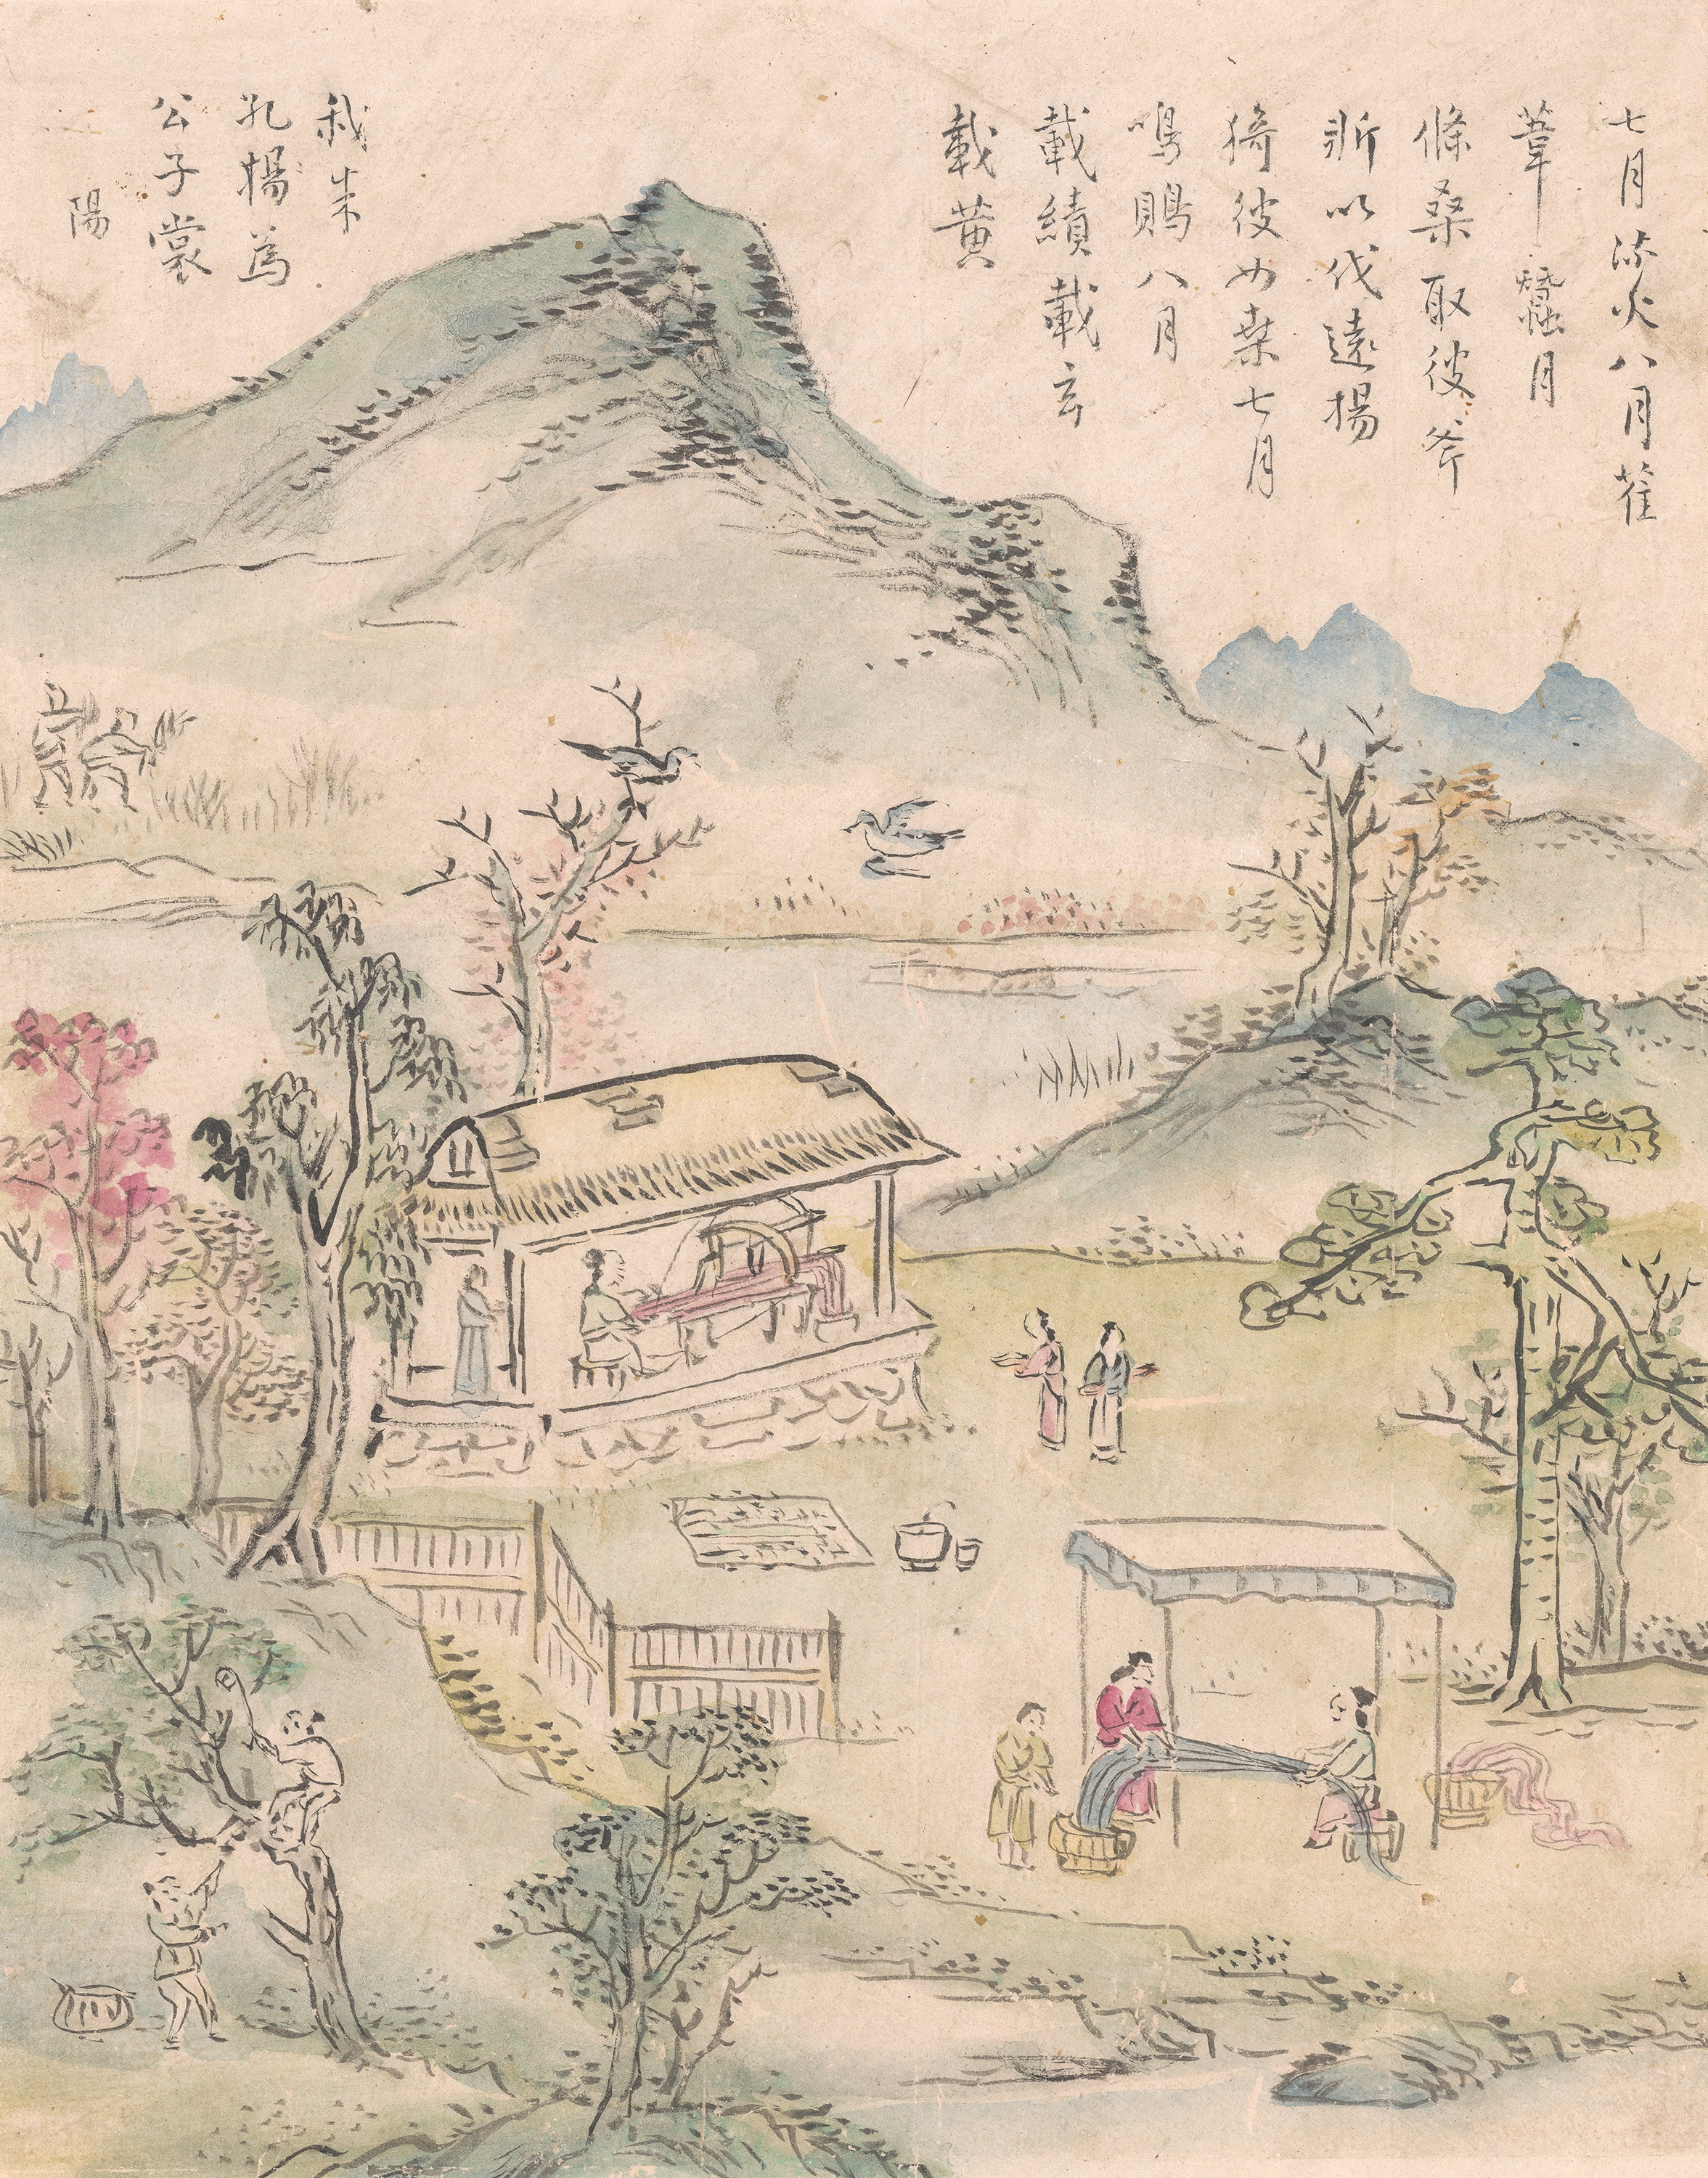 七月流火八月萑
葦 蠶月
條桑取彼斧
斨以伐遠揚
猗彼女桑七月
鳴鵙八月
載績載玄
載黄
我朱
孔揚為
公子裳
陽